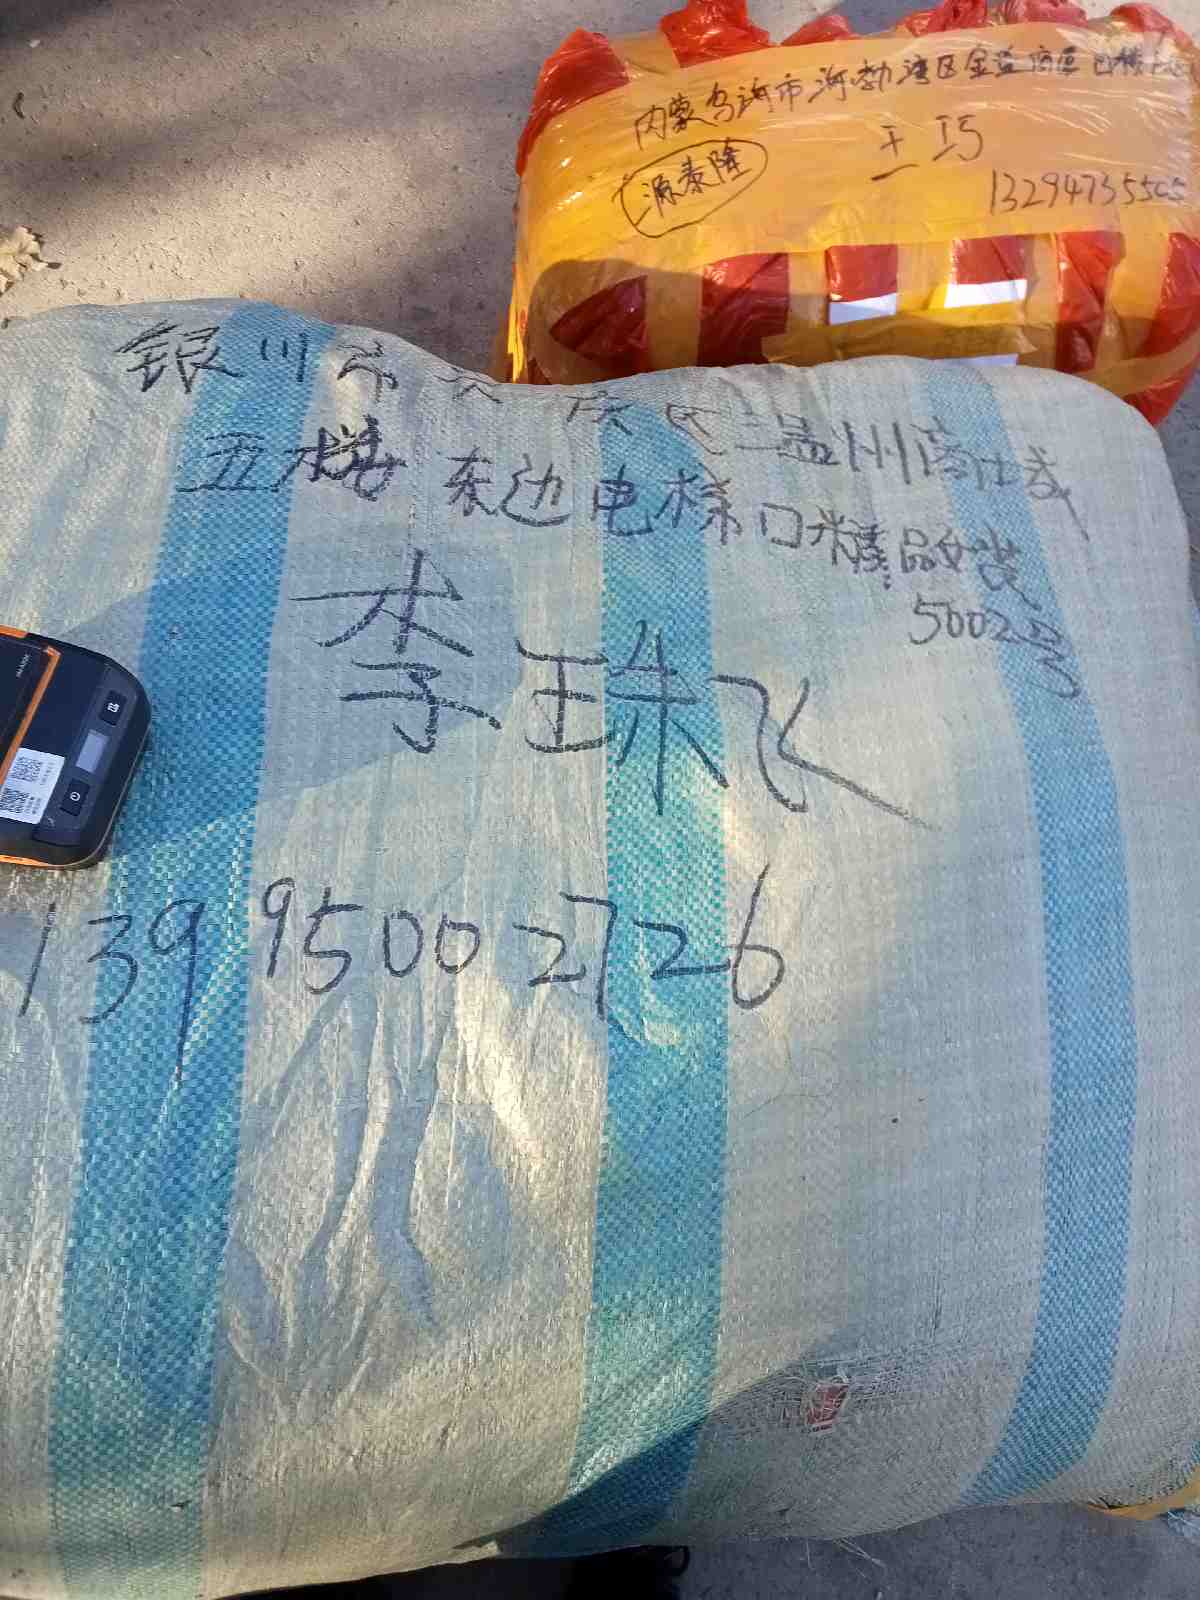 内蒙乌海市海勃湾区金益商区
王巧
源泰隆
13294735505
银川市兴庆区温州商城
五楼东边电梯口精品女装
5002号
李珠飞
13995002726